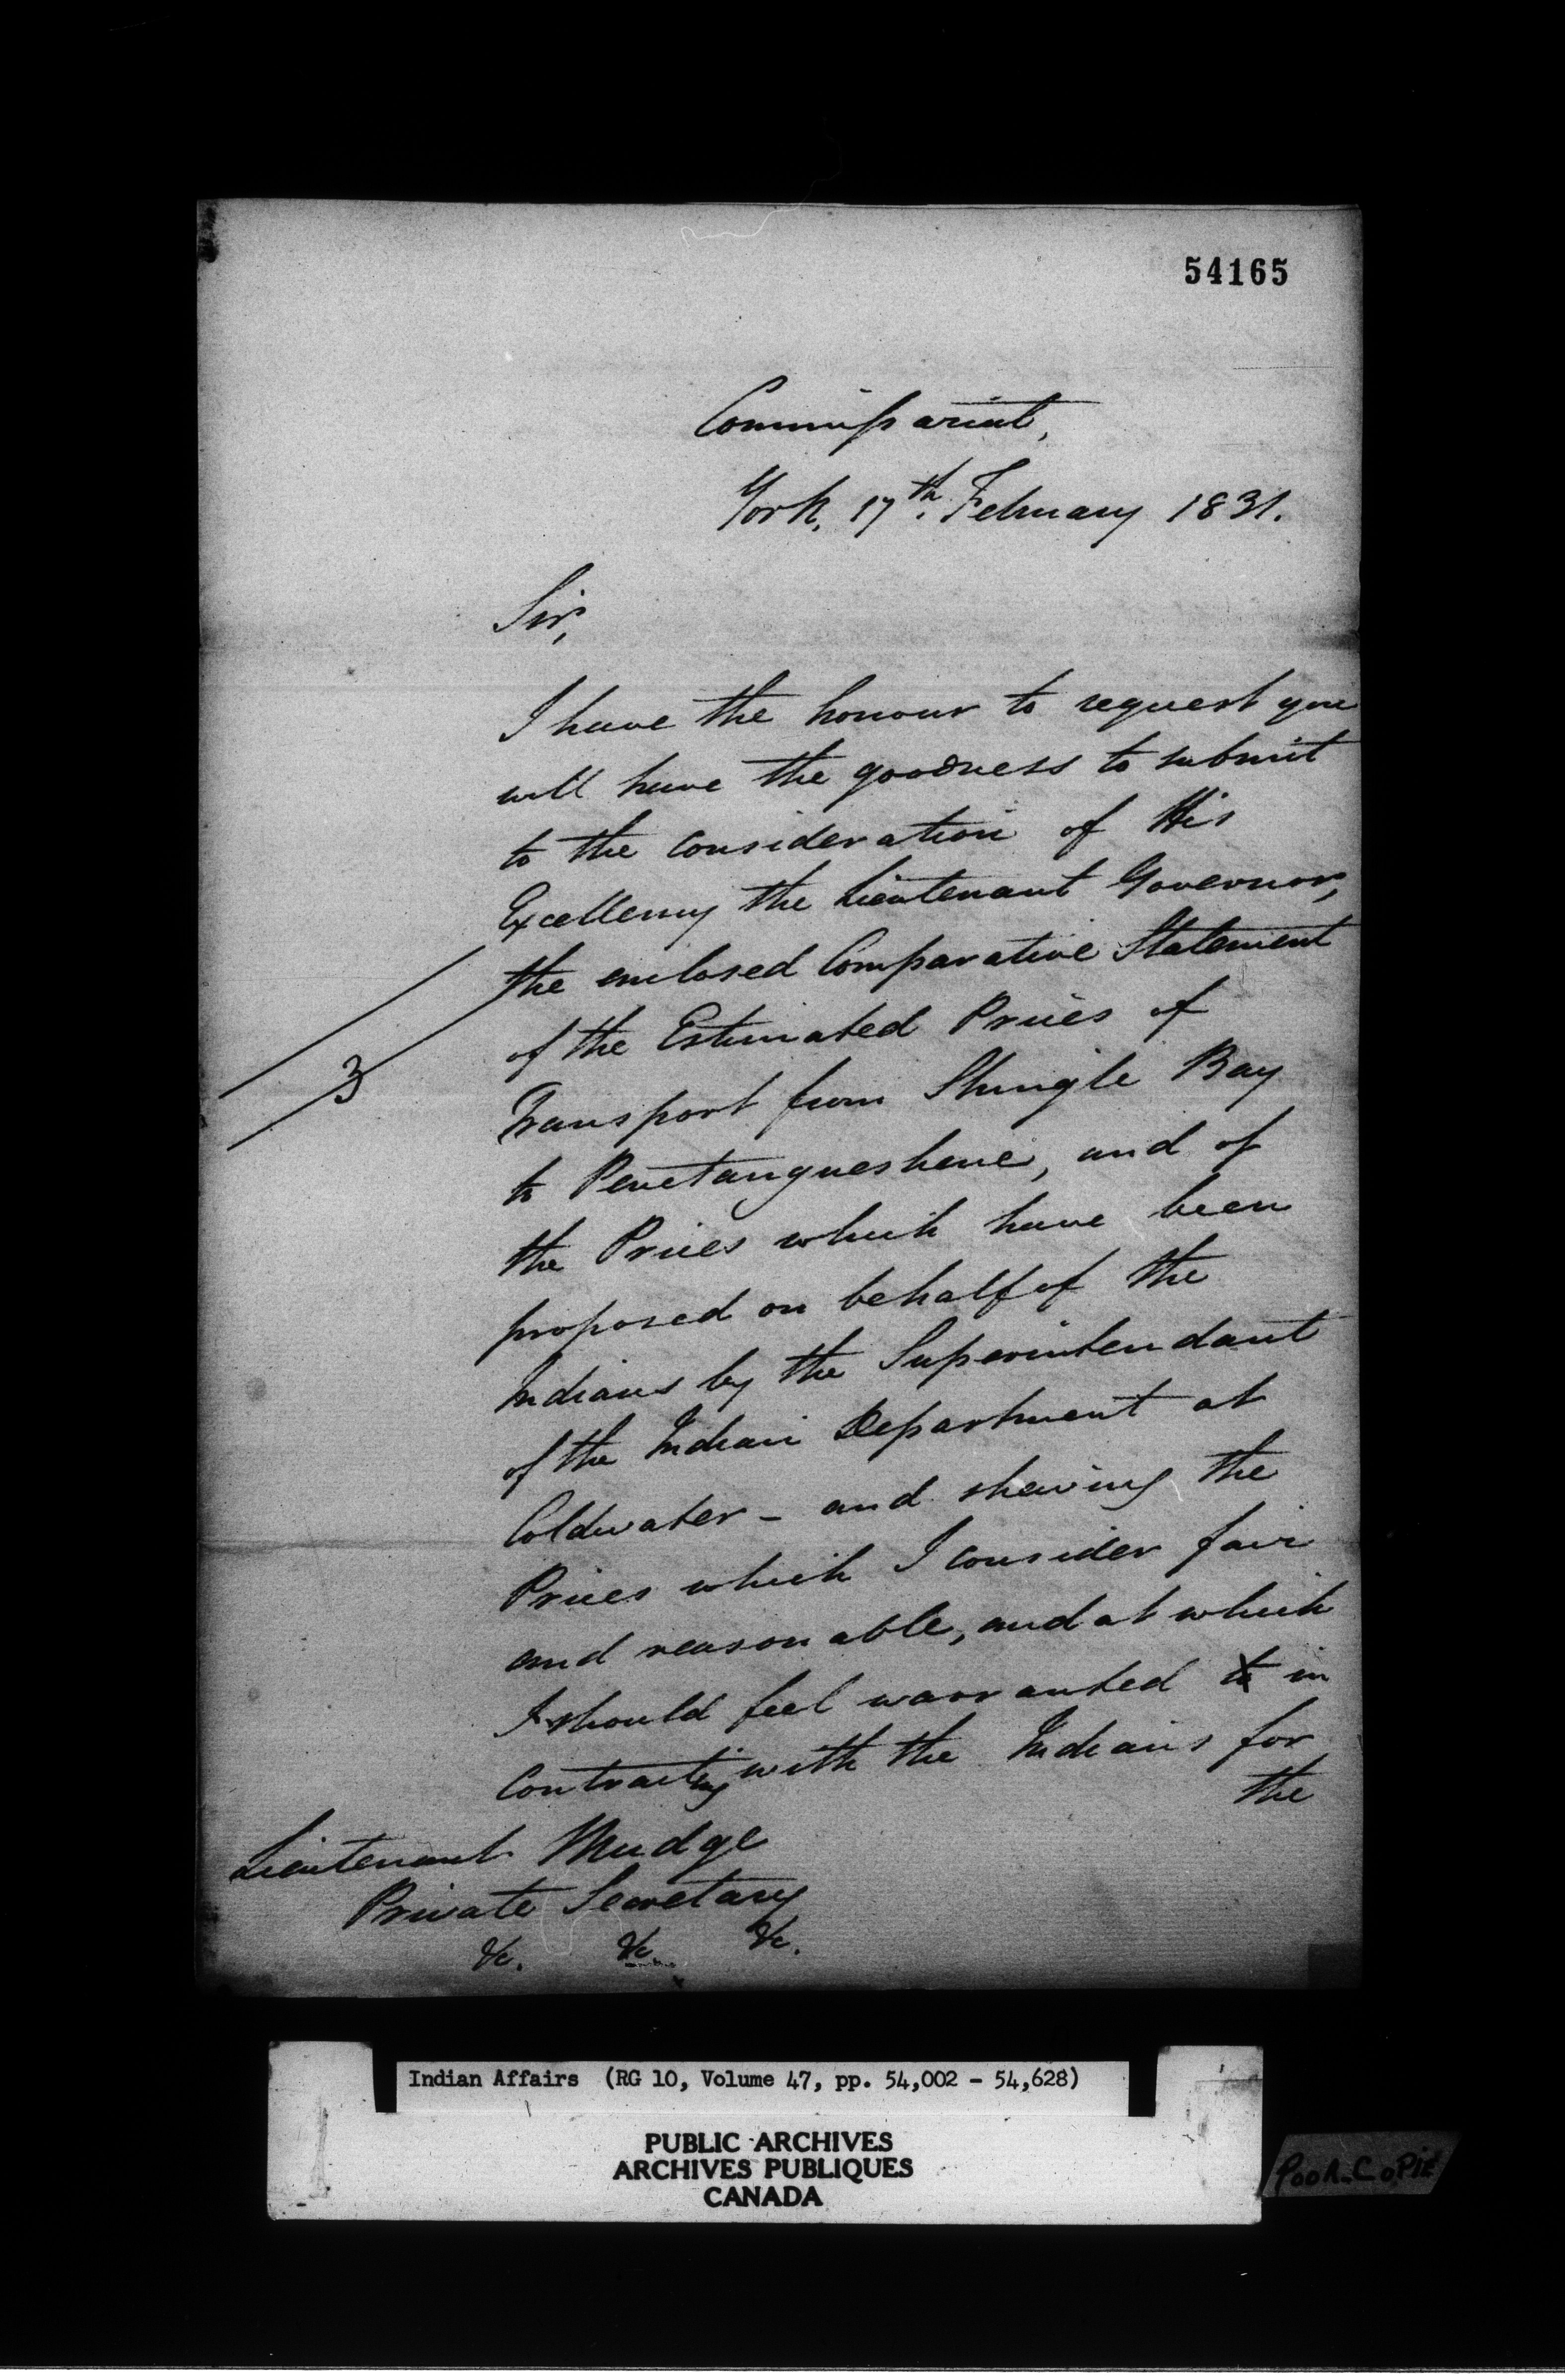 54165
Commissariat,
York, 17th. February 1831.
Sir,
I have the honour to request you
will have the goodness to submit
to the consideration of His
Excellency the Lieutenant Governor,
the enclosed Comparative Statement
of the Estimated Prices of
Transport from Shingle Bay
to Penetangueshene, and of
the Prices which have been
proposed on behalf of the
Indians by the Superintendant
of the Indian Department at
Coldwater – and shewing the
Prices which I consider fair
and reasonable, and at which
I should feel warranted to in
Contracting with the Indians for
the
3
Lieutenant Mudge
Private Secretary
&c. &c. &c.
Indian Affairs (RG 10, Volume 47, pp. 54,002 - 54,628)
PUBLIC ARCHIVES
ARCHIVES PUBLIQUES
CANADA
POOR COPIE